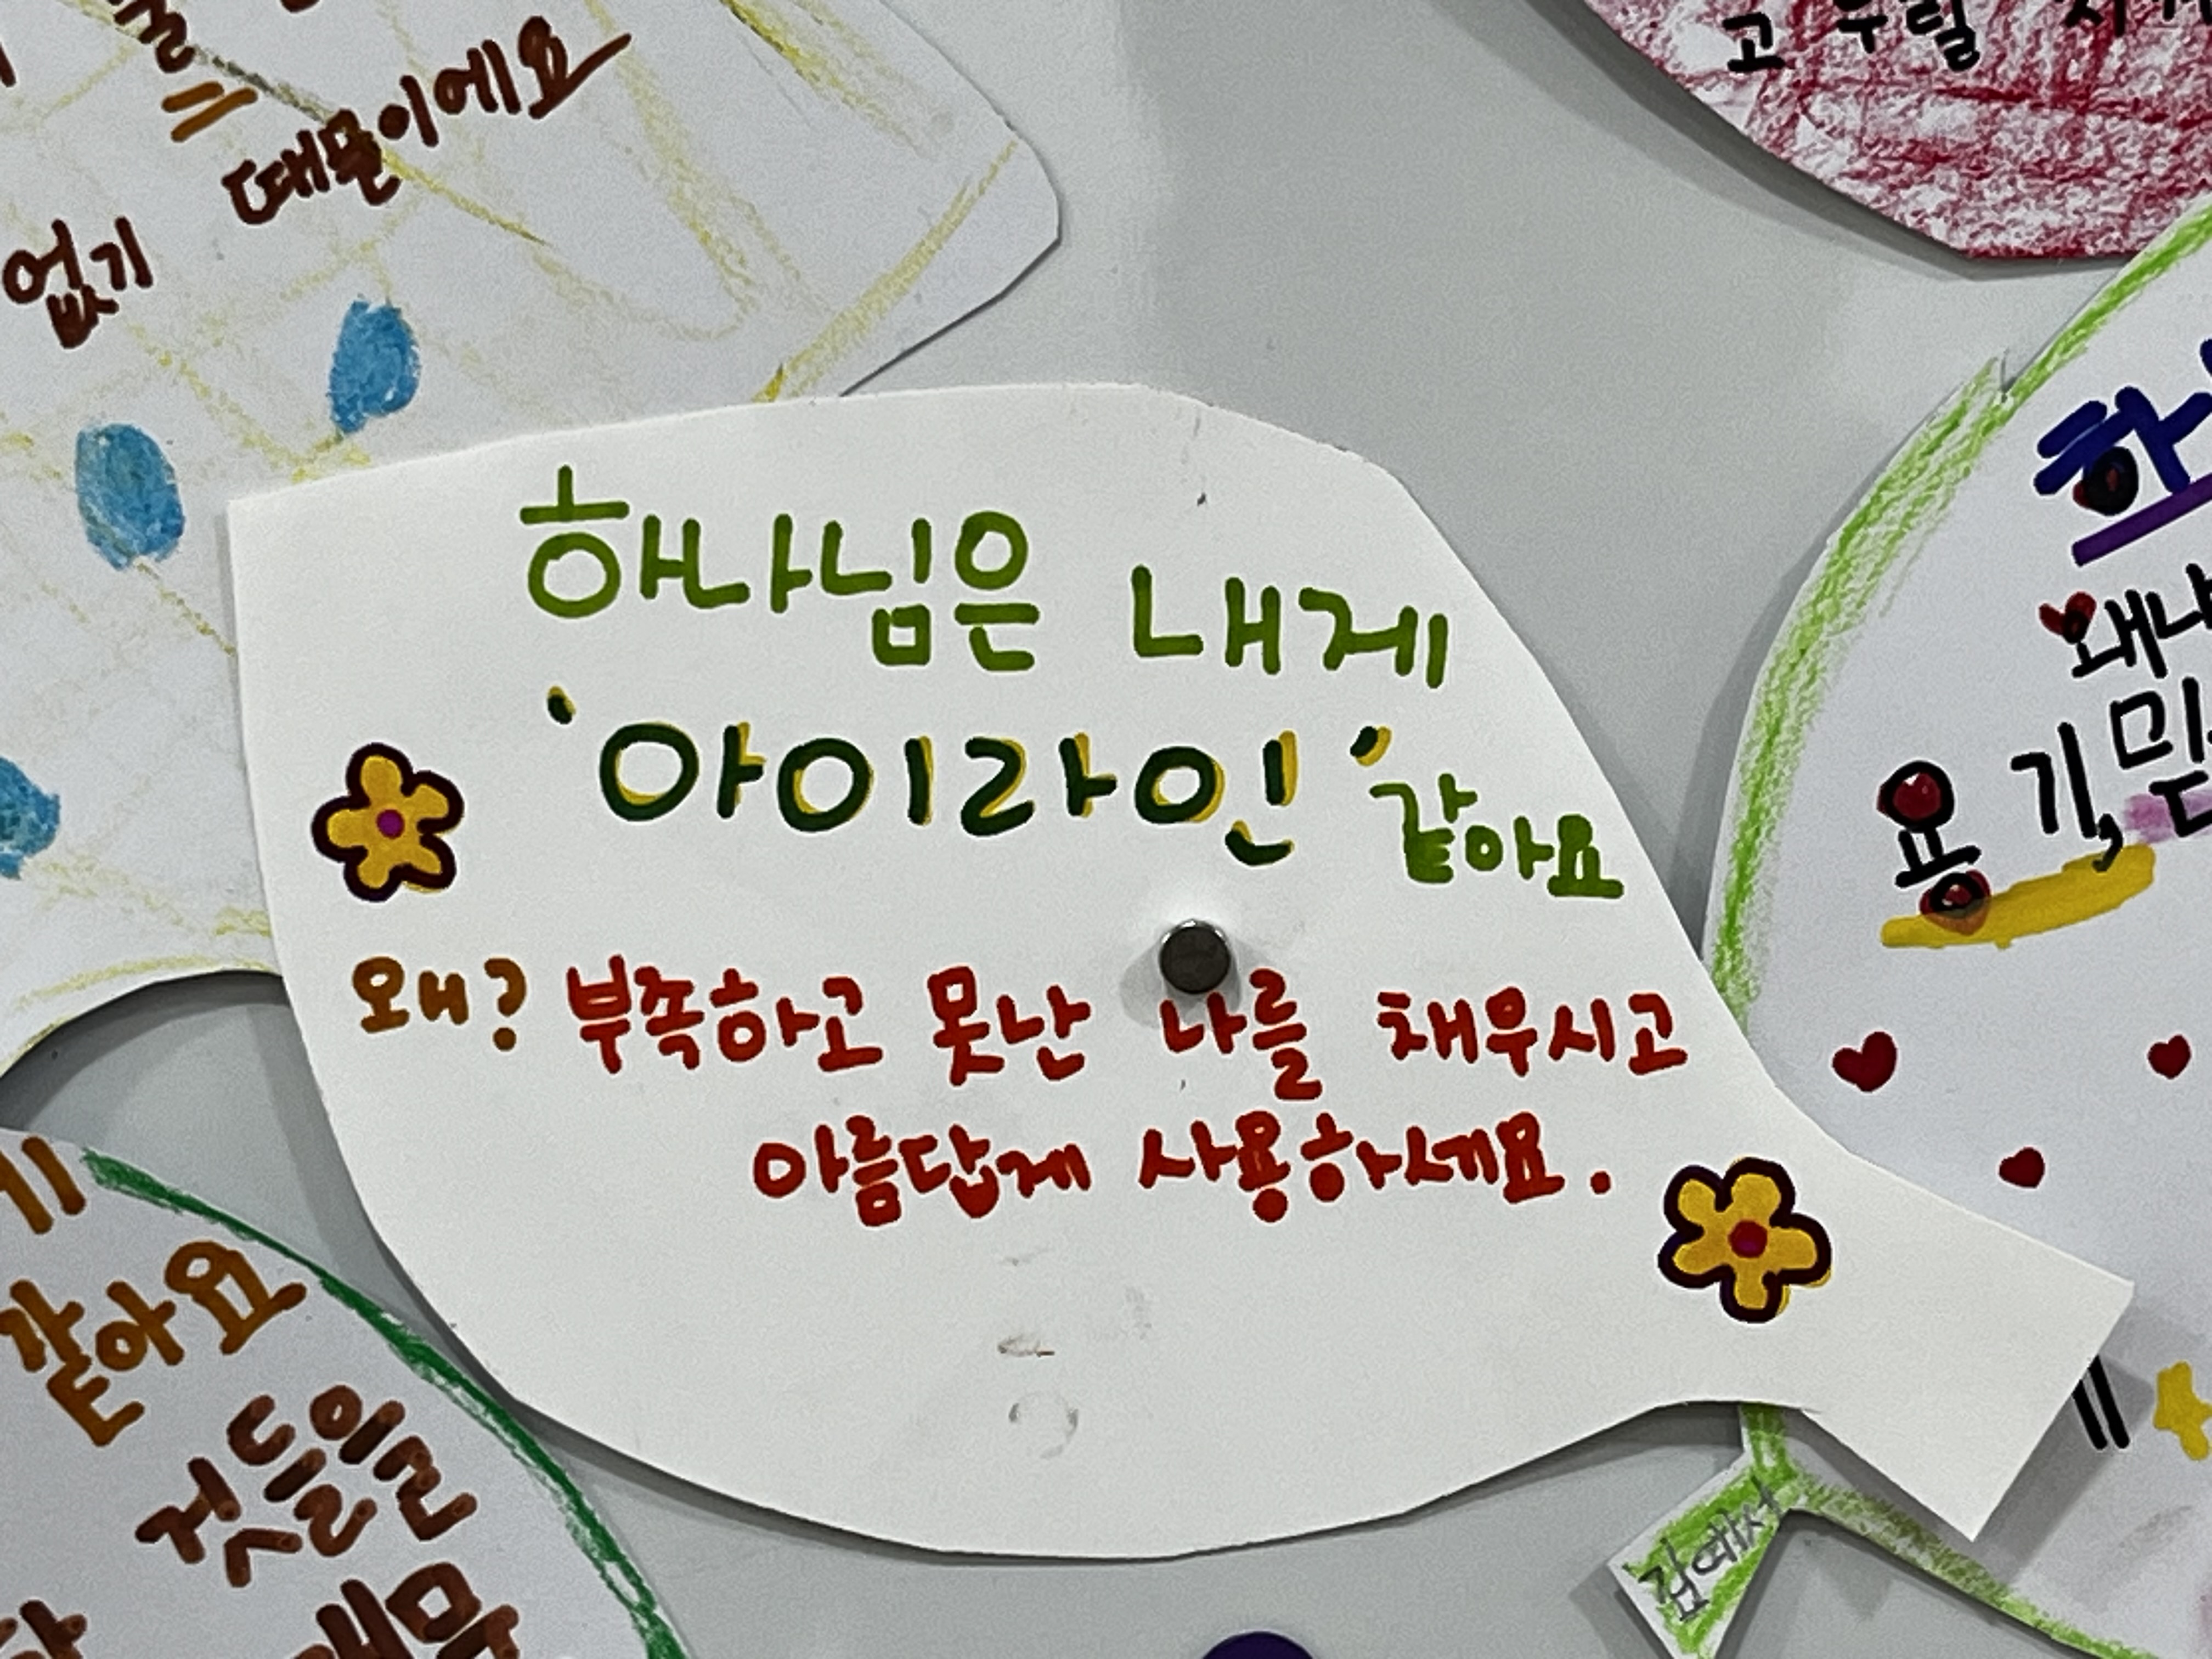 때문이에요
없기
하나님은 내게
'아이라인' 같아요
왜? 부족하고 못난 나를 채우시고
아름답게 사용하세요.
왜냐
용기, 믿
같아요